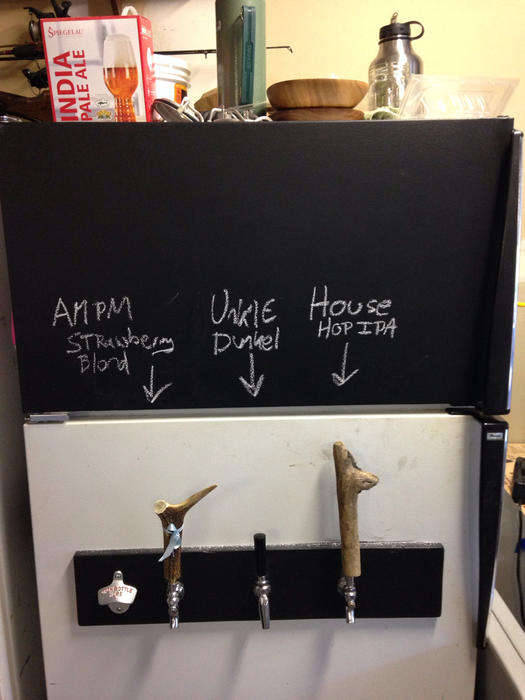 SPIEGELAU
INDIA
PALE ALE
AMPM
Strawberry
Blond
UNKlE
Dunkel
House
HOP IPA